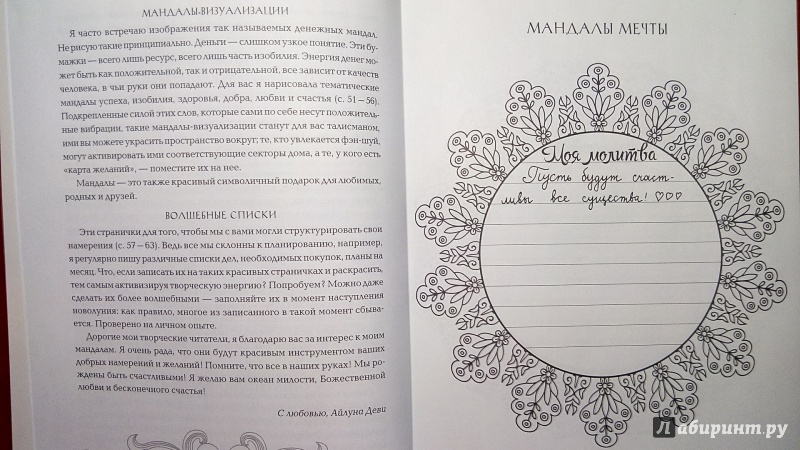 МАНДАЛЫ-ВИЗУАЛИЗАЦИИ
Я часто встречаю изображения так называемых денежных мандал.
Не рисую такие принципиально. Деньги — слишком узкое понятие. Эти бу-
мажки — всего лишь ресурс, всего лишь часть изобилия. Энергия денег мо-
жет быть как положительной, так и отрицательной, все зависит от качеств
человека, в чьи руки они попадают. Для вас я нарисовала тематические
мандалы успеха, изобилия, здоровья, добра, любви и счастья (с. 51 — 56).
Подкрепленные силой этих слов, которые сами по себе несут положитель-
ные вибрации, такие мандалы-визуализации станут для вас талисманом,
ими вы можете украсить пространство вокруг; те, кто увлекается фэн-шуй,
могут активировать ими соответствующие секторы дома, а те, у кого есть
«карта желаний», — поместите их на нее.
Мандалы — это также красивый символичный подарок для любимых,
родных и друзей.
ВОЛШЕБНЫЕ СПИСКИ
Эти странички для того, чтобы мы с вами могли структурировать свои
намерения (с. 57 — 63). Ведь все мы склонны к планированию, например,
я регулярно пишу различные списки дел, необходимых покупок, планы на
месяц. Что, если записать их на таких красивых страничках и раскрасить,
тем самым активизируя творческую энергию? Попробуем? Можно даже
сделать их более волшебными — заполняйте их в момент наступления
новолуния: как правило, многое из записанного в такой момент сбыва-
ется. Проверено на личном опыте.
Дорогие мои творческие читатели, я благодарю вас за интерес к моим
мандалам. Я очень рада, что они будут красивым инструментом ваших
добрых намерений и желаний! Помните, что все в наших руках! Мы ро-
ждены быть счастливыми! Я желаю вам океан милости, Божественной
любви и бесконечного счастья!
С любовью, Айлуна Деви
МАНДАЛЫ МЕЧТЫ
Моя молитва
Пусть будут счаст-
ливы все существа! ♡♡♡
Лабиринт.ру